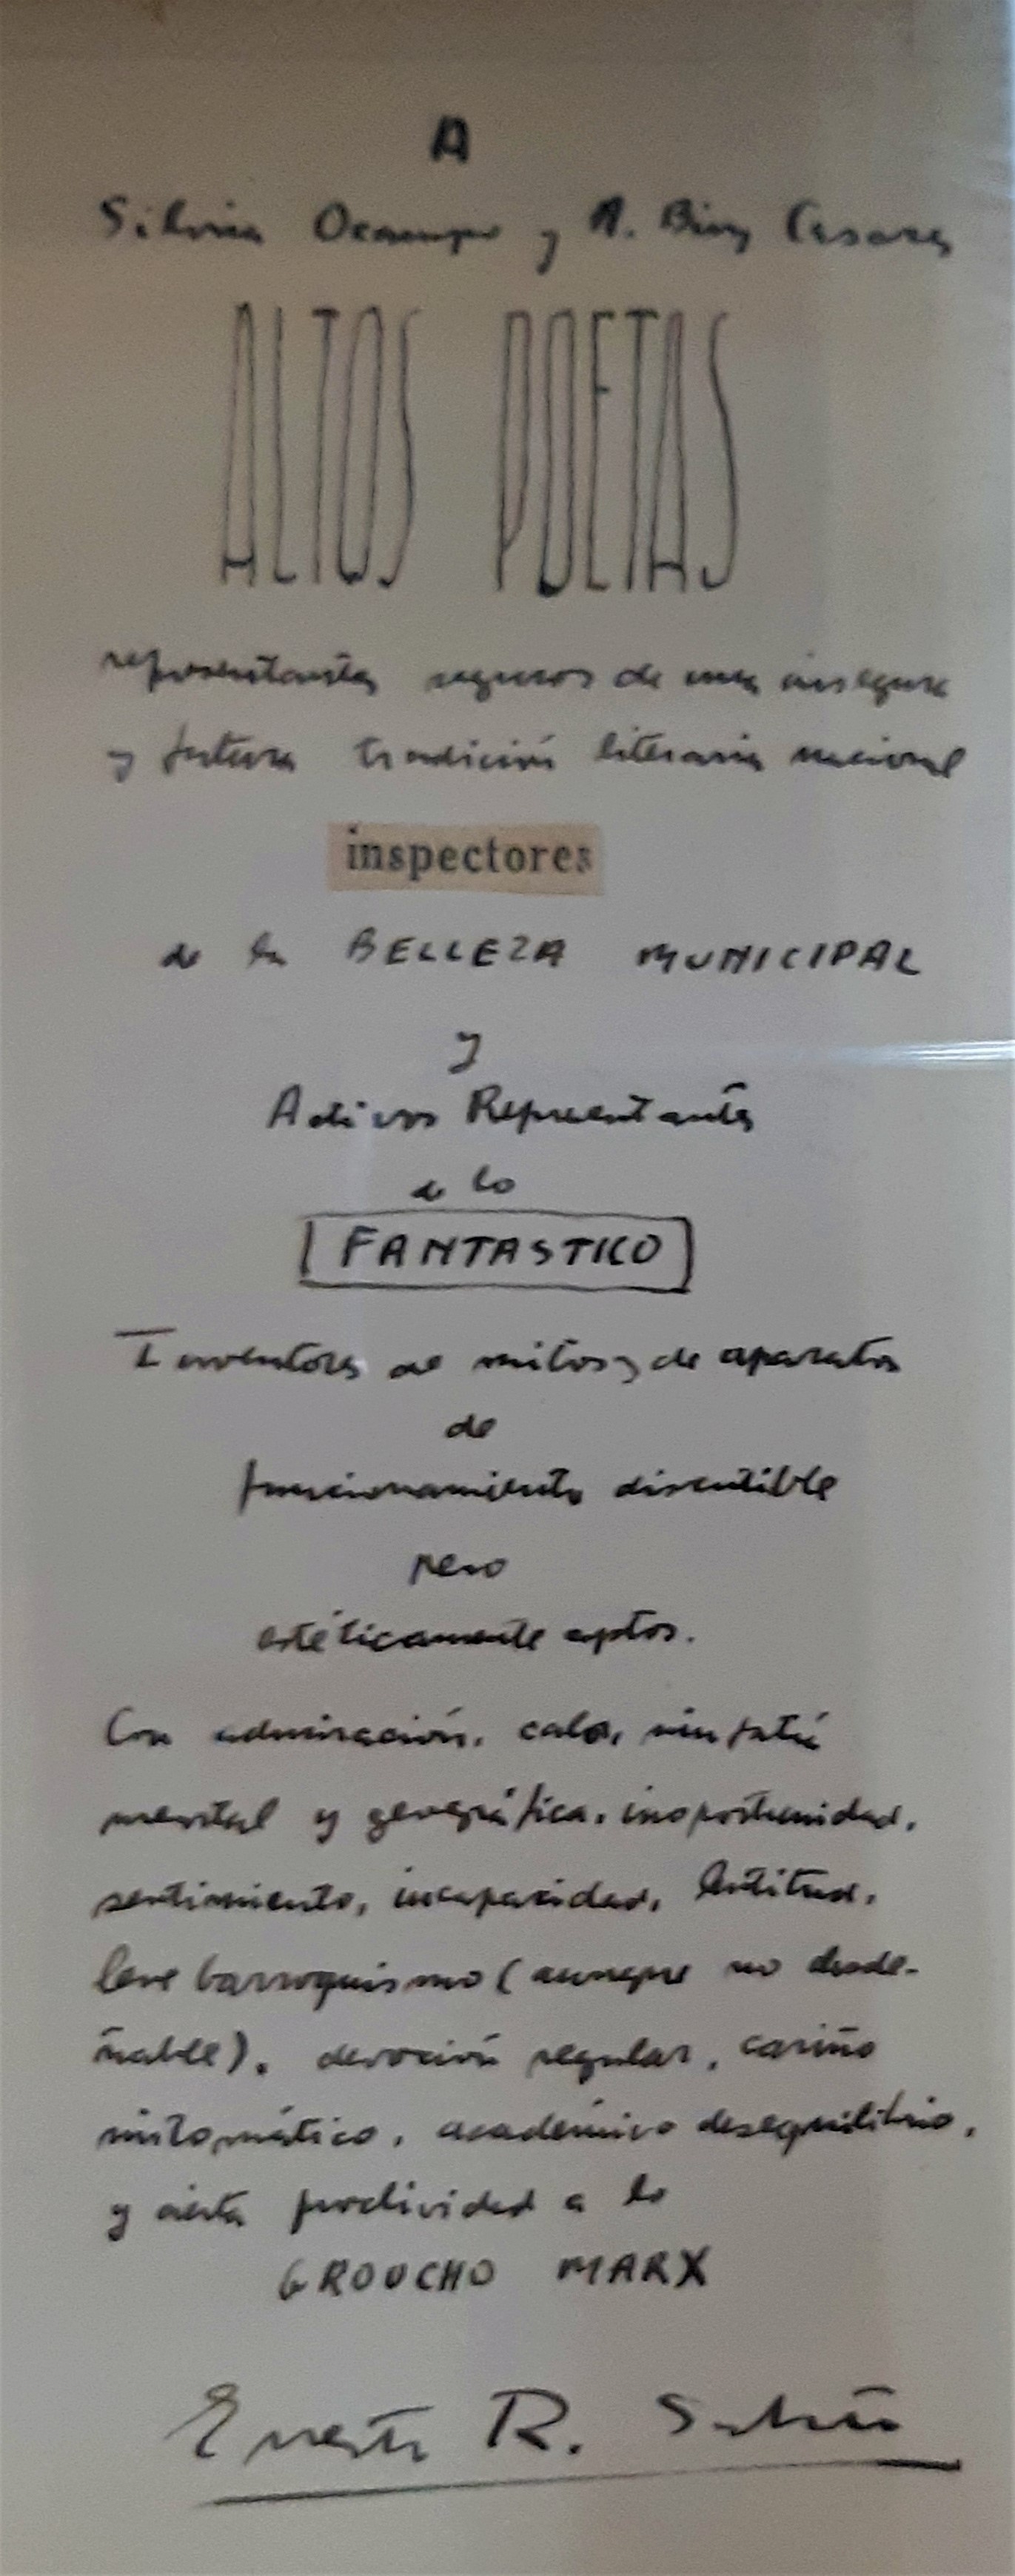 A
Silvina Ocampo y A. Bioy Casares
ALTOS POETAS
representantes seguros de una insegura
y futura tradición literaria nacional
inspectores
de la BELLEZA MUNICIPAL
y
Activos Representantes
de lo
FANTASTICO
Inventores de mitos y de aparatos
de
funcionamiento discutible
pero
estéticamente aptos.
Con admiración, calor, simpatía
mental y geográfica, inoportunidad,
sentimiento, incapacidad, lentitud,
leve barroquismo (aunque no desde-
ñable), devoción regular, cariño
mitomático, académico desequilibrio,
y cierta proclividad a lo
GROUCHO MARX
Ernesto R. Sabato